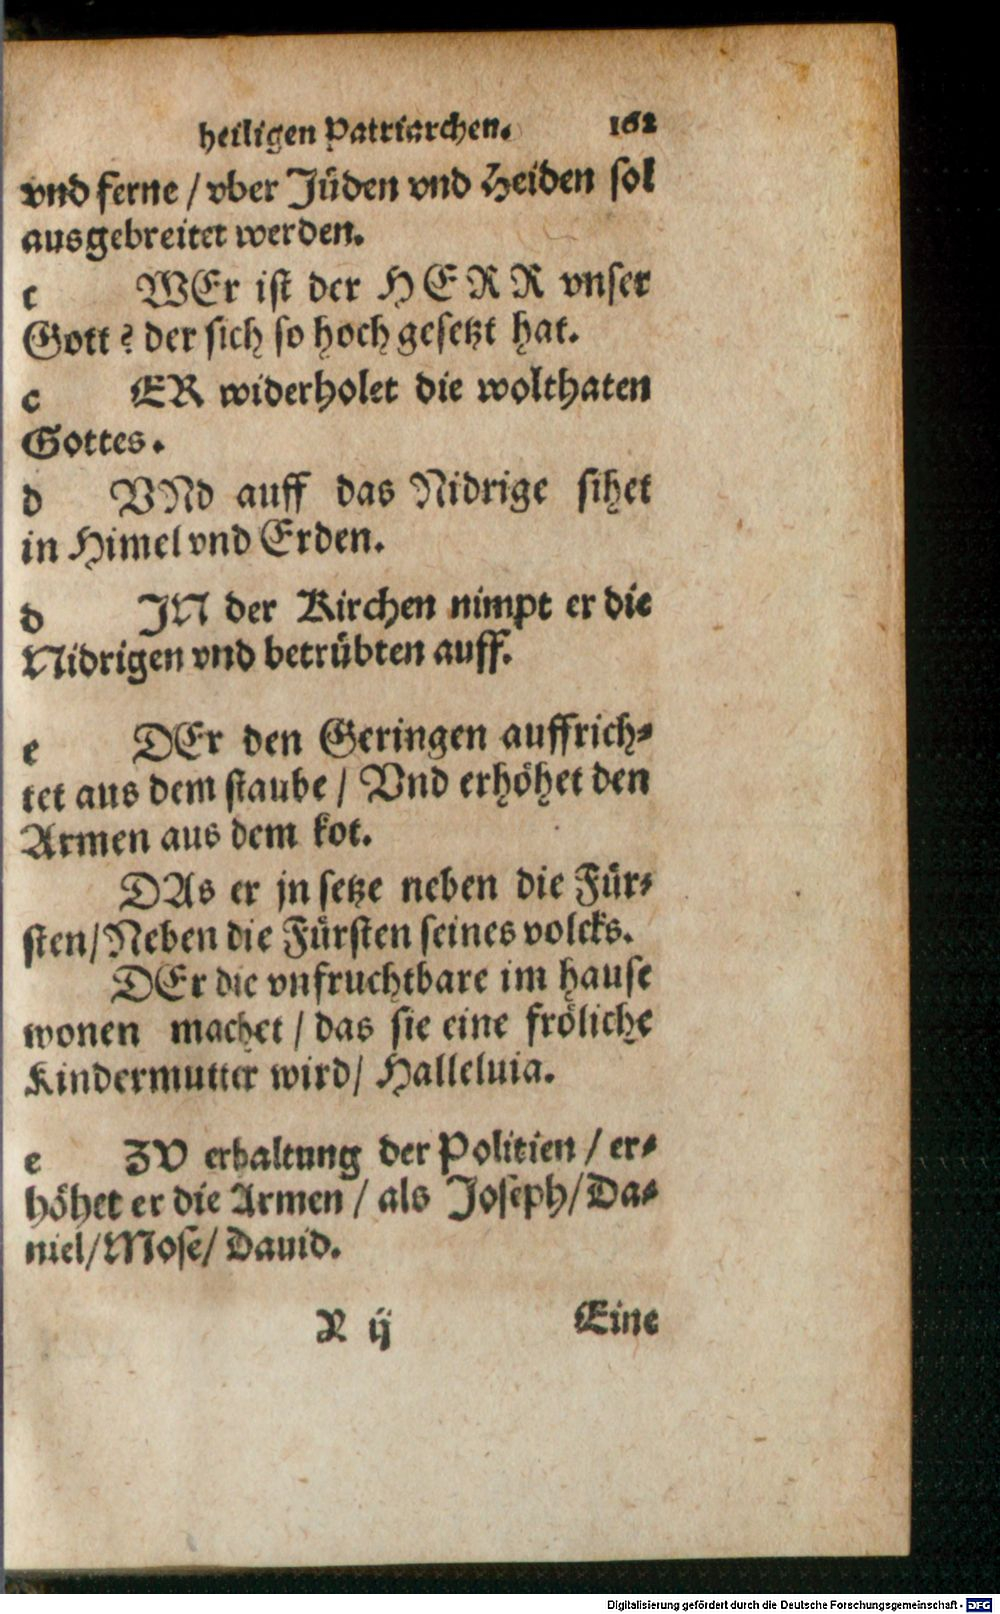 heiligen Patriarchen. 162
vnd ferne / vber Jüden vnd Heiden sol
ausgebreitet werden.
c WEr ist der HERR vnser
Gott? der sich so hoch gesetzt hat.
c ER widerholet die wolthaten
Gottes.
d VNd auff das Nidrige sihet
in Himel vnd Erden.
d JN der Kirchen nimpt er die
Nidrigen vnd betrübten auff.
e DEr den Geringen auffrich-
tet aus dem staube / Vnd erhöhet den
Armen aus dem kot.
DAs er jn setze neben die Für-
sten/Neben die Fürsten seines volcks.
DEr die vnfruchtbare im hause
wonen machet / das sie eine fröliche
Kindermutter wird/ Halleluia.
e ZV erhaltung der Politien / er-
höhet er die Armen / als Joseph/Da-
niel/Mose/ Dauid.
X ij Eine
Digitalisierung gefördert durch die Deutsche Forschungsgemeinschaft - DFG